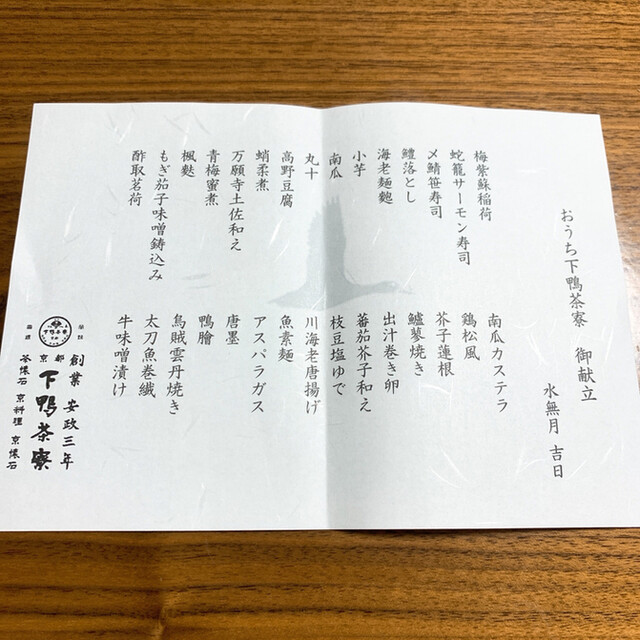 おうち下鴨茶寮 御献立
水無月 吉日
梅紫蘇稲荷
蛇籠サーモン寿司
〆鯖笹寿司
鱧落とし
海老麺麭
小芋
南瓜
丸十
高野豆腐
蛸柔煮
万願寺土佐和え
青梅蜜煮
楓麩
もぎ茄子味噌鋳込み
酢取茗荷
南瓜カステラ
鶏松風
芥子蓮根
鱸蓼焼き
出汁巻き卵
蕃茄芥子和え
枝豆塩ゆで
川海老唐揚げ
魚素麺
アスパラガス
唐墨
鴨膾
烏賊雲丹焼き
太刀魚巻繊
牛味噌漬け
創業 安政三年
京都
下鴨茶寮
茶懐石 京料理 京懐石